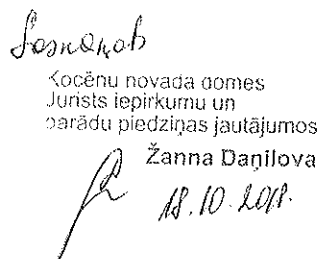 Saskaņots
Kocēnu novada domes
Jurists iepirkumu un
parādu piedziņas jautājumos
Žanna Daņilova
18.10.2018.